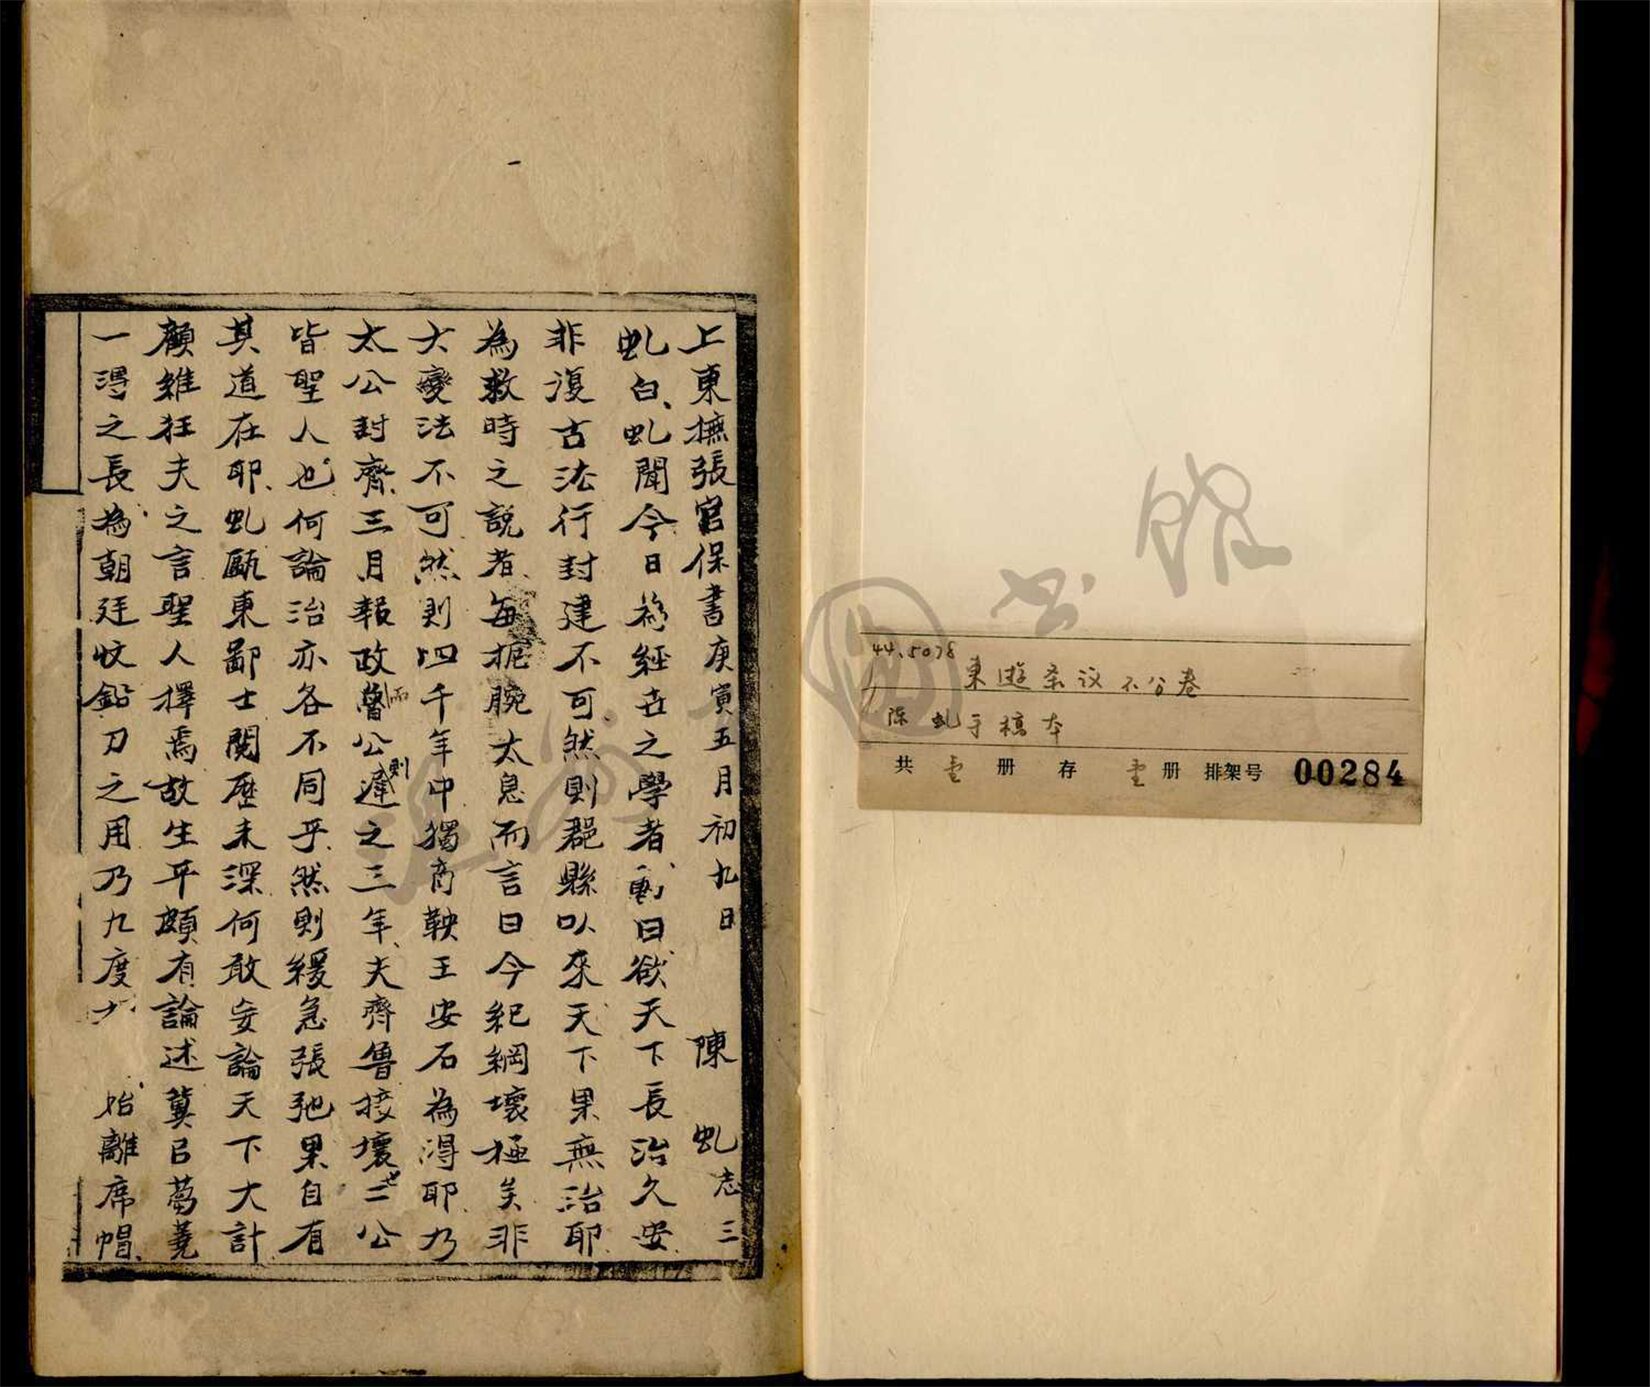 上東撫張宮保書庚寅五月初九日 陳虬志三
虬白虬聞今日務經世之學者動曰欲天下長治久安
非復古法行封建不可然則郡縣以來天下果無治耶
為救時之說者每扼腕太息而言曰今紀綱壞極矣非
大變法不可然則四千年中獨商鞅王安石為得耶乃
太公封齊三月報政而魯公則遲之三年夫齊魯接壤也二公
皆聖人也何論治亦各不同乎然則緩急張弛果自有
其道在耶虬甌東鄙士閱歷未深何敢妄論天下大計
顧維狂夫之言聖人擇焉故生平頗有論述冀臣芻蕘
一得之長為朝廷收鉛刀之用乃九度 始離席帽
44.5078
東遊條议不分卷
陳虬手稿本
共 壹 册 存 壹 册 排架号 00284